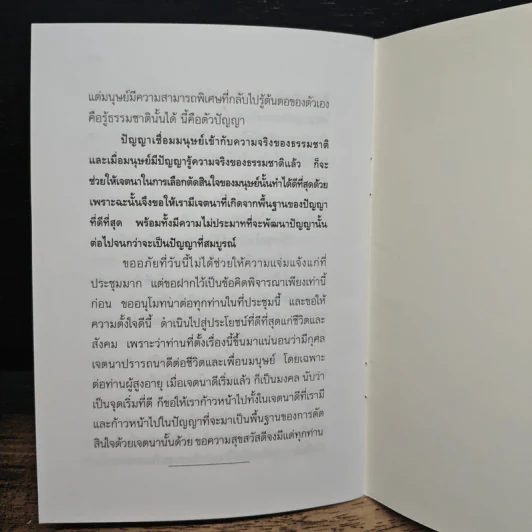 แต่มนุษย์มีความสามารถพิเศษที่กลับไปรู้ต้นตอของตัวเอง
คือรู้ธรรมชาตินั้นได้ นี้คือตัวปัญญา
ปัญญาเชื่อมมนุษย์เข้ากับความจริงของธรรมชาติ
และเมื่อมนุษย์มีปัญญารู้ความจริงของธรรมชาติแล้ว ก็จะ
ช่วยให้เจตนาในการเลือกตัดสินใจของมนุษย์นั้นทำได้ดีที่สุดด้วย
เพราะฉะนั้นจึงขอให้เรามีเจตนาที่เกิดจากพื้นฐานของปัญญา
ที่ดีที่สุด พร้อมทั้งมีความไม่ประมาทที่จะพัฒนาปัญญานั้น
ต่อไปจนกว่าจะเป็นปัญญาที่สมบูรณ์
ขออภัยที่วันนี้ไม่ได้ช่วยให้ความแจ่มแจ้งแก่ที่
ประชุมมาก แต่ขอฝากไว้เป็นข้อคิดพิจารณาเพียงเท่านี้
ก่อน ขออนุโมทนาต่อทุกท่านในที่ประชุมนี้ และขอให้
ความตั้งใจดีนี้ ดำเนินไปสู่ประโยชน์ที่ดีที่สุดแก่ชีวิตและ
สังคม เพราะว่าท่านที่ตั้งเรื่องนี้ขึ้นมาแน่นอนว่ามีกุศล
เจตนาปรารถนาดีต่อชีวิตและเพื่อนมนุษย์ โดยเฉพาะ
ต่อท่านผู้สูงอายุ เมื่อเจตนาดีเริ่มแล้ว ก็เป็นมงคล นับว่า
เป็นจุดเริ่มที่ดี ก็ขอให้เราก้าวหน้าไปทั้งในเจตนาดีที่เรามี
และก้าวหน้าไปในปัญญาที่จะมาเป็นพื้นฐานของการตัด
สินใจด้วยเจตนานั้นด้วย ขอความสุขสวัสดีจงมีแด่ทุกท่าน